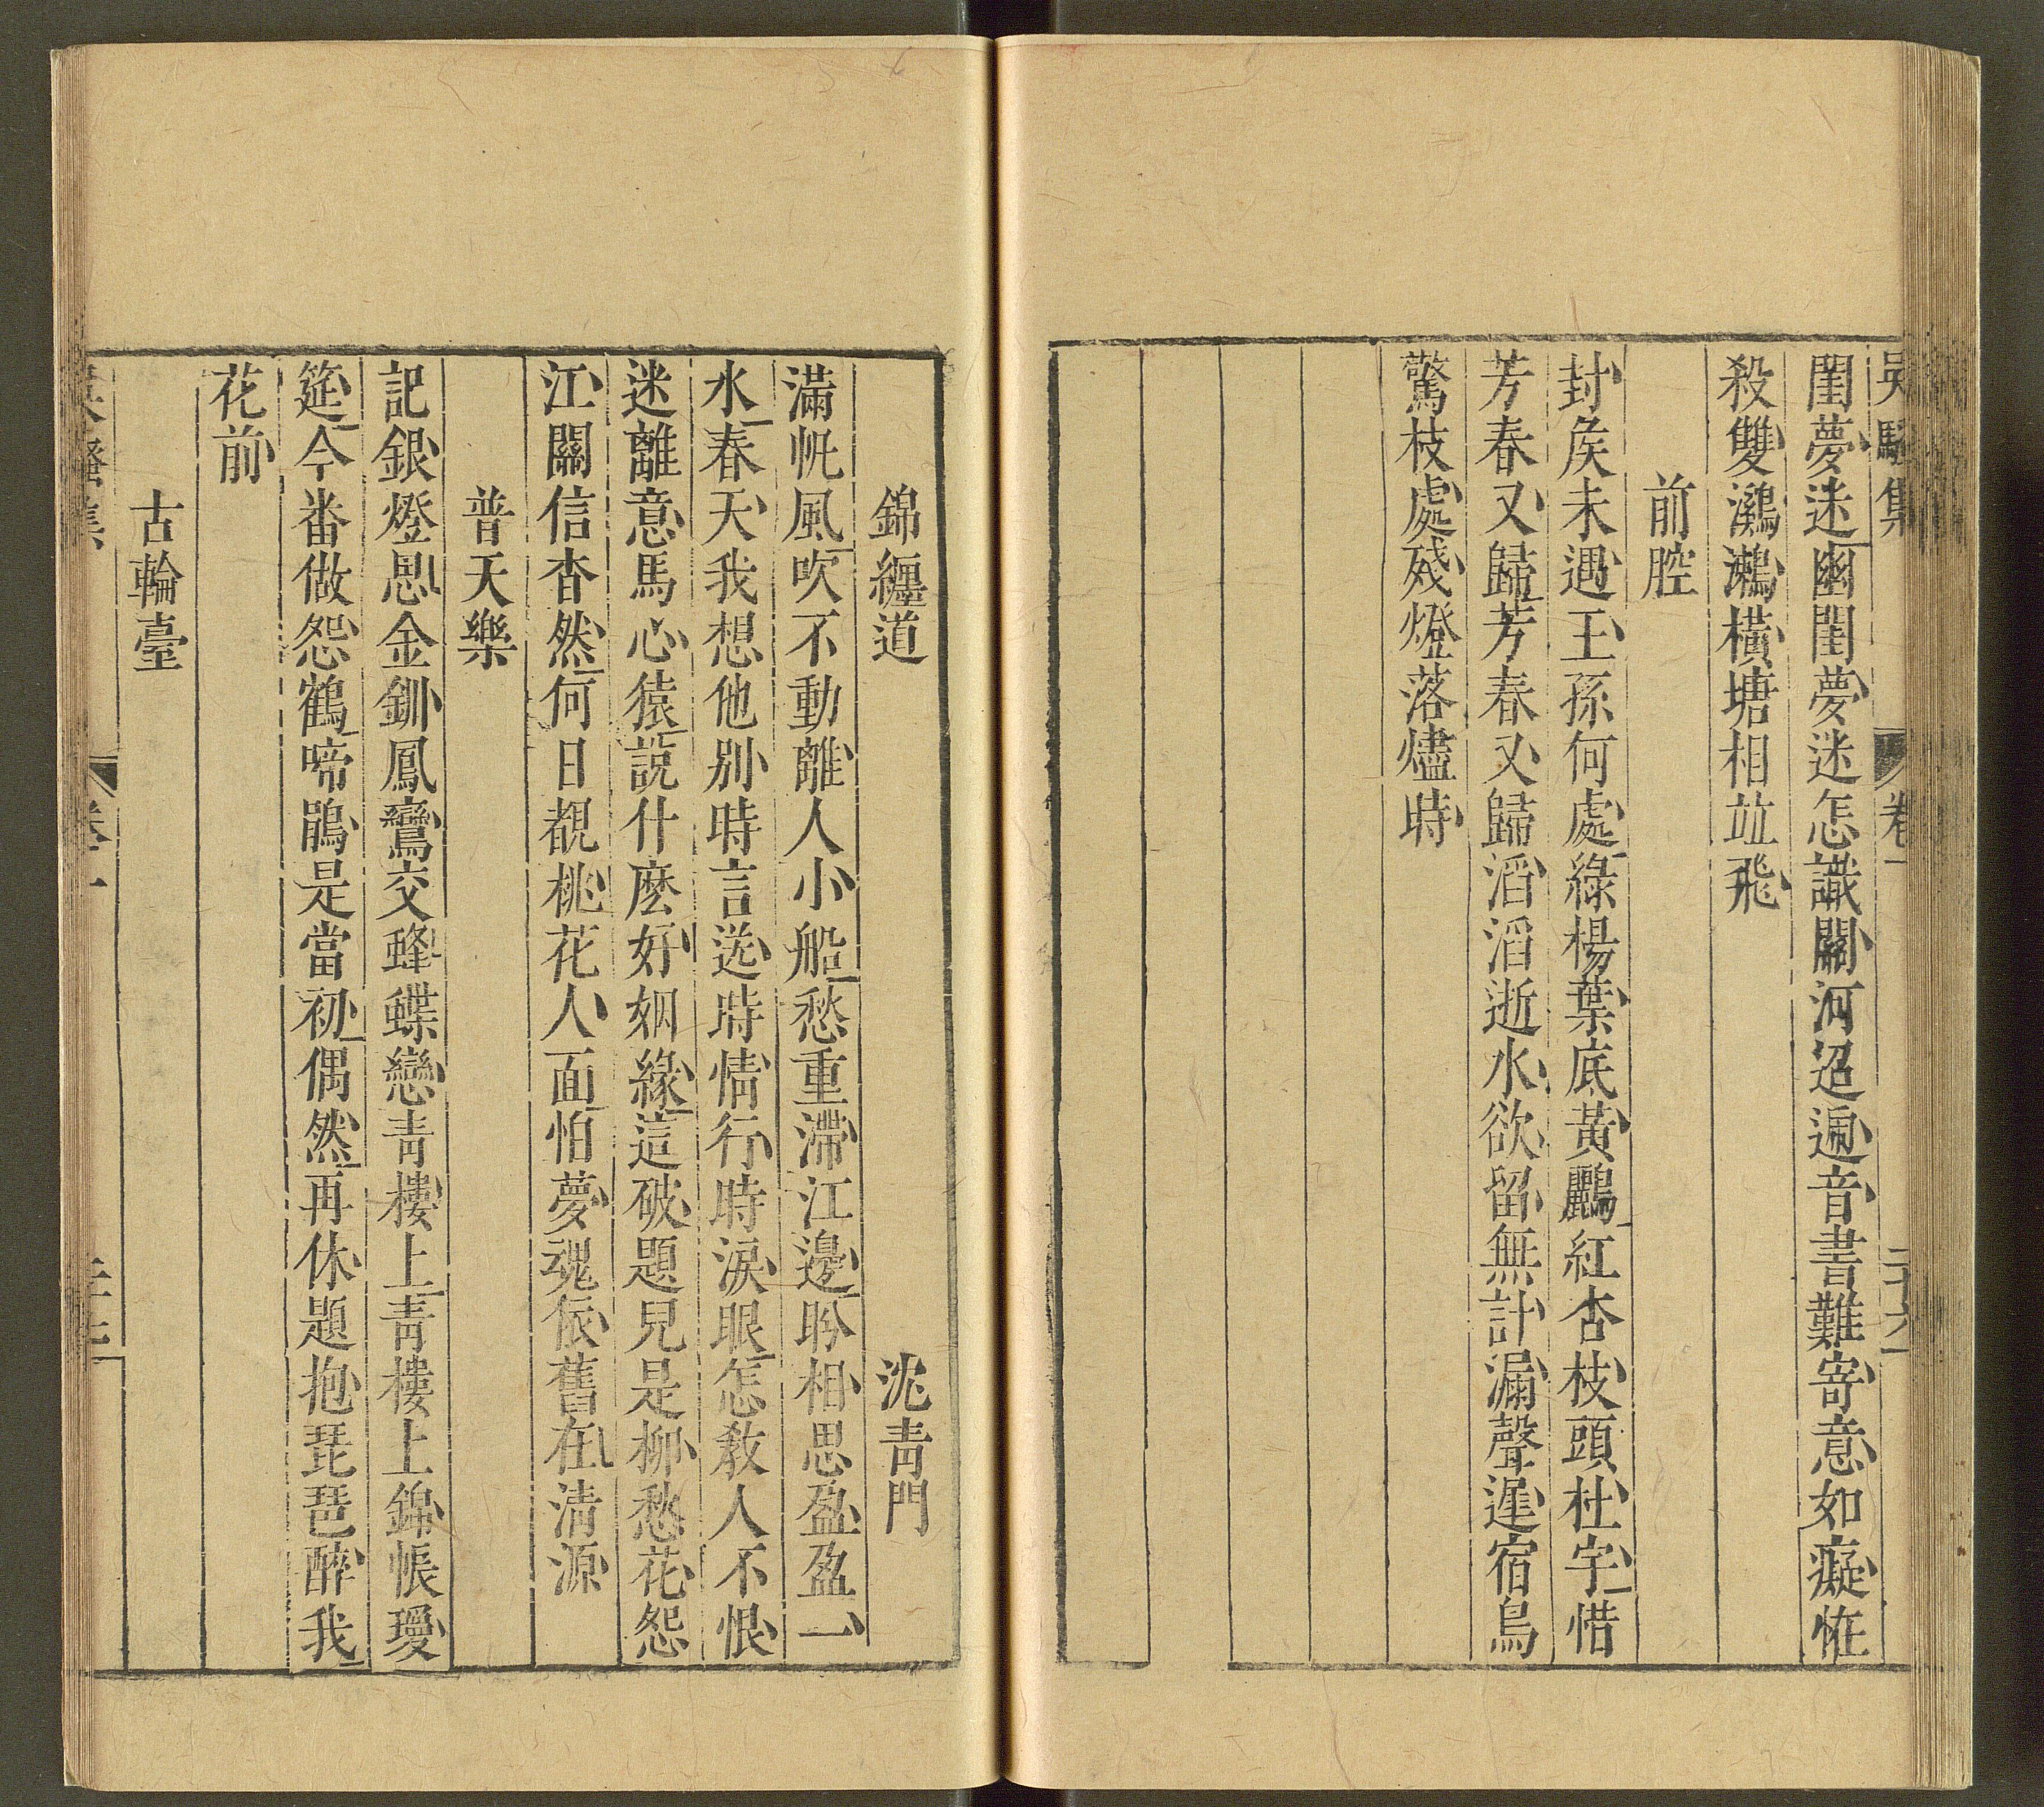 吳騷集 卷一 二十六
閨夢迷幽閨夢迷怎識關河迢遞音書難寄意如癡恠
殺雙鸂鶒橫塘相並飛
前腔
封矦未遇王孫何處綠楊葉底黃鸝紅杏枝頭杜宇惜
芳春又歸芳春又歸滔滔逝水欲留無計漏聲遲宿鳥
驚枝處殘燈落燼時
錦纏道 沈青門
滿帆風吹不動離人小船愁重滯江邊盻相思盈盈一
水春天我想他別時言送時情行時淚眼怎教人不恨
迷離意馬心猿說什麽好姻緣這破題兒是柳愁花怨
江關信杳然何日覩桃花人面怕夢魂依舊在清源
普天樂
記銀燈思金釧鳳鸞交蜂蝶戀青樓上青樓上錦帳璦
筵今番做怨鶴啼鵑是當初偶然再休題抱琵琶醉我
花前
古輪臺
卷一